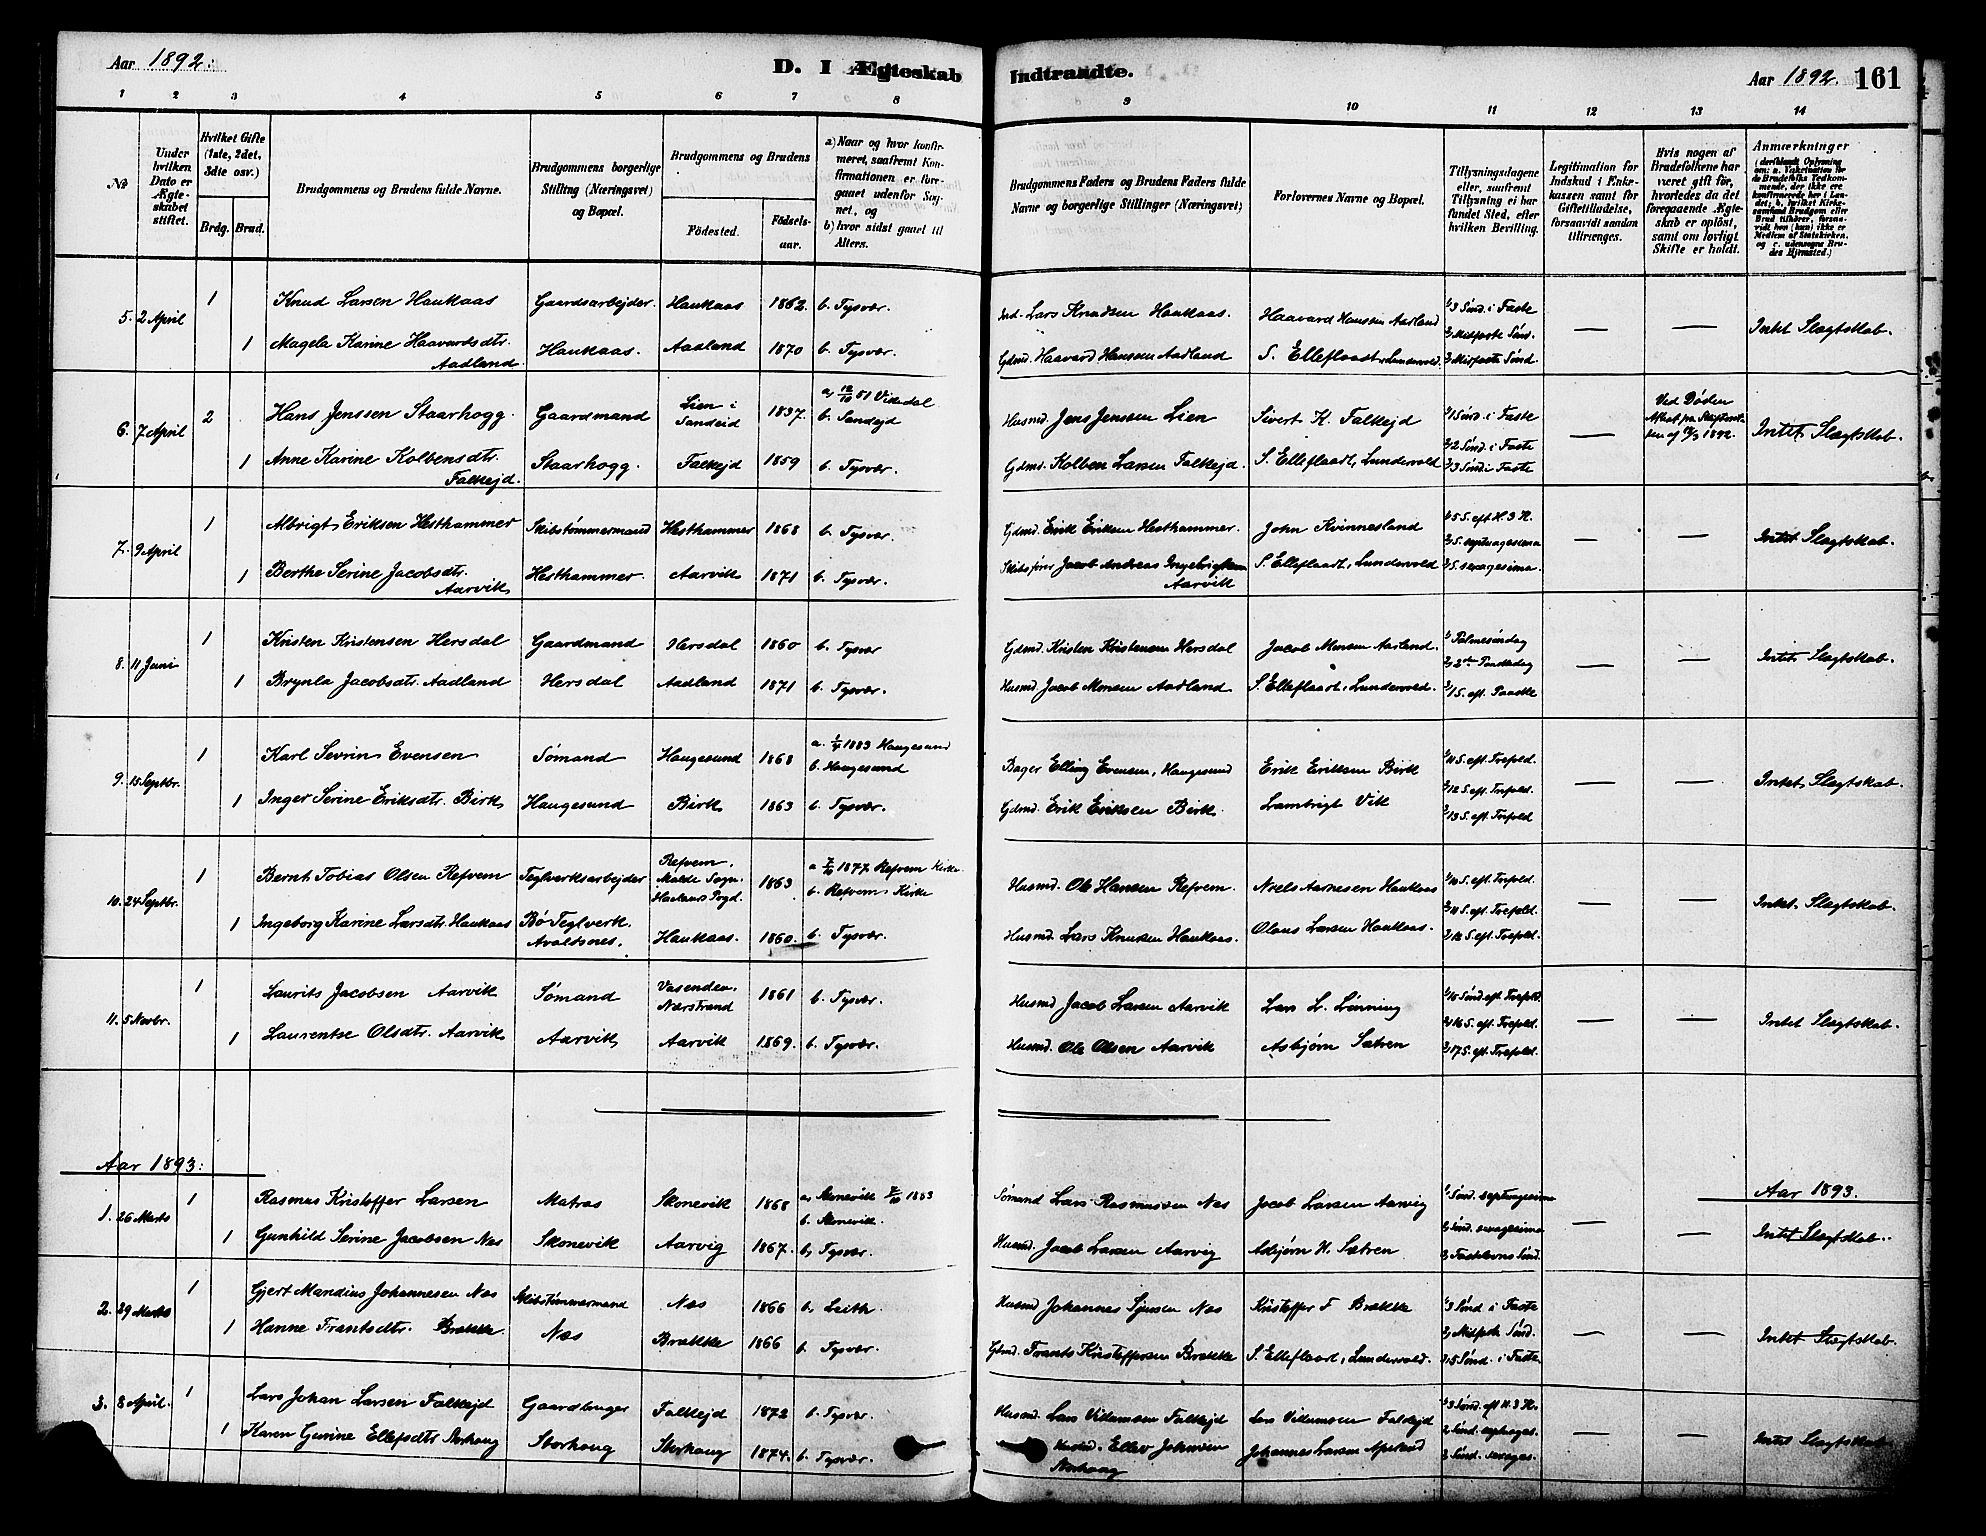 Aar 1892.
D. I Ægteskab Indtraadte.
Aar 1892.
161
1 2 3 4 5 6 7 8 9 10 11 12 13 14
No
Under hvilken Dato er Ægteskabet stiftet.
Hvilket Gifte (1ste, 2det, 3die osv.)
Brdg. Brud.
Brudgommens og Brudens fulde Navne.
Brudgommens borgerlige Stilling (Næringsvei) og Bopæl.
Brudgommens og Brudens
Födested.
Födselsaar.
a) Naar og hvor konfirmeret, saafremt Konfirmationen er foregaaet udenfor Sognet, og
b) hvor sidst gaaet til Alters.
Brudgommens Faders og Brudens Faders fulde Navne og borgerlige Stillinger (Næringsvei)
Forlovernes Navne og Bopæl.
Tillysningsdagene eller, saafremt Tillysning ei har fundet Sted, efter hvilken Bevilling.
Legitimation for Indskud i Enkekassen samt for Giftetilladelse, forsaavidt saadan tiltrænges.
Hvis nogen af Brudefolkene har været gift för, hvorledes da det foregaaende Ægteskab er oplöst, samt om lovligt Skifte er holdt.
Anmærkninger
5. 2 April 1 Knud Larsen Haukaas Gaardsarbejder. Haukaas 1862. b. Tysvær. Ind. Lars Knudsen Haukaas. Haavard Hansen Aarland 1/3 Sønd. i Faste
1 Magela Karine Haavardsdtr. Aadland Haukaas. Aadland 1870 b. Tysvær. Gdmd. Haavard Hansen Aadland S. Elleflaadt, Lundervold. — — Intet Slagtskab.
6. 7 April 2 Hans Jenssen Staarhogg. Gaardmand Lien i Sandeid 1837. b. Sandejd Husmd. Jens Jenssen Lien Sivert K. Falkejd 1/1 Sønd. i Faste — Ved Døden
1 Anne Karine Kolbensdtr. Falkejd. Staarhogg. Falkejd 1859 b. Tysvær. Gdmd. Kolben Larsen Falkejd. S. Elleflaadt, Lundervold 2/2 Sønd. i Faste 3/3 Sønd. i Faste Intet Slagtskab.
7. 9 April 1 Albrigt Eriksen Hesthammer Skibstømmermand Hesthammer 1868 b. Tysvær. Gdmd. Erik Eriksen Hesthammer. John Kvinnesland 1/5 S. eft. H. 3 K. 2/S. septuagesima
1 Berthe Serine Jacobsdtr. Aarvik Hesthammer. Aarvik 1871 b. Tysvær. Skibsfører Jacob Andreas Aarvik S. Elleflaadt, Lundervold 3/S. sexagesima. — — Intet Slagtskab.
8. 11 Juni 1 Kristen Kristensen Hersdal Gaardmand Hersdal 1860 b. Tysvær Gdmd. Kristen Kristensen Hersdal Jacob Monsen Aarland. 1/ Palmesøndag
1 Brynla Jacobsdtr. Aadland Hersdal Aadland 1871 b. Tysvær. Husmd. Jacob Monsen Aadland S. Elleflaadt, Lundervold. 3/1 S. eft. Paaske — — Intet Slagtskab.
9. 15 Septbr. 1 Karl Sevrin Evensen Sømand Haugesund 1868 a. 1/4 1883 Haugesund b. Haugesund Bager Elling Evensen, Haugesund Erik Eriksen Birk 1/11 S. eft. Trefold.
1 Inger Serine Eriksdtr. Birk Haugesund Birk 1863 b. Tysvær. Gdmd. Erik Eriksen Birk. Lambrigt Vik 2/12 S. eft. Trefold. 3/13 S. eft. Trefold — — Intet Slagtskab.
10. 24 Septbr. 1 Bernt Tobias Olsen Refvem Teglverksarbejder Refvem. 1863 1877. Refvem Kirke. b. Refvem Kirke Husmd. Ole Hansen Refvem. Niels Aarnesen Haukaas 1/10 S. eft. Trefold.
1 Ingeborg Karine Larsdtr. Haukaas Bø Teglverk. Avaldsnes. Haukaas. 1860. b. Tysvær. Husmd. Lars Knutsen Haukaas. Olaus Larsen Haukaas. 2/11 S. eft. Trefold. — — Intet Slagtskab.
11. 5 Novbr. 1 Laurits Jacobsen Aarvik Sømand Vasenden. Nærstrand 1861 b. Tysvær. Husmd Jacob Larsen Aarvik Lars L. Lønning 1/15 Sønd. eft. Trefold.
1 Laurentse Olsdtr. Aarvik Aarvik Aarvik 1869. b. Tysvær. Husmd. Ole Olsen Aarvik Asbjørn Sætren 2/16 S. eft. Trefold. 3/17 S. eft. Trefold. — — Intet Slagtskab.
Aar 1893:
Aar 1893.
1. 26 Marts 1 Rasmus Kristoffer Larsen Matros Skonevik 1868 a, Skonevik 1883 b. Skonevik. Sømand Lars Rasmussen Næs Jacob Larsen Aarvig 1/ Sønd. septuagesima
1 Gunhild Serine Jacobsen Næs Skonevik Aarvig 1867. b, Tysvær. Husmd. Jacob Larsen Aarvig Asbjørn H. Sætren 2/ Sønd. sexagesima 3/ Fastelavns Sønd. — Intet Slagtskab.
2. 29 Marts 1 Gjert Mandius Johannesen Næs Skibstømmermand Næs 1866 b, Leith. Husmd Johannes Næs Kristoffer F Brække 1/3 Sønd i Faste
1 Hanne Frantsdtr. Brække. Næs Brække 1866 b. Tysvær. Gdmd. Frants Kristoffersen Brække S. Elleflaadt, Lundervold. 2/ Midfaste Sønd. 3/5 Sønd. i Faste — — Intet Slagtskab.
3. 8 April. 1 Lars Johan Larsen Falkejd Gaardbruger Falkejd 1872 b. Tysvær. Husmd Lars Falkejd Lars Falkejd 1/3 Sønd. eft H. 3 K.
1 Karen Gurine Ellefsdtr Storhaug Storhaug Storhaug 1874. b. Tysvær. Husmd. Storhaug Johannes Larsen 2/ Sønd. septuages. 3/ Sønd. sexages. — — Intet Slagtskab.